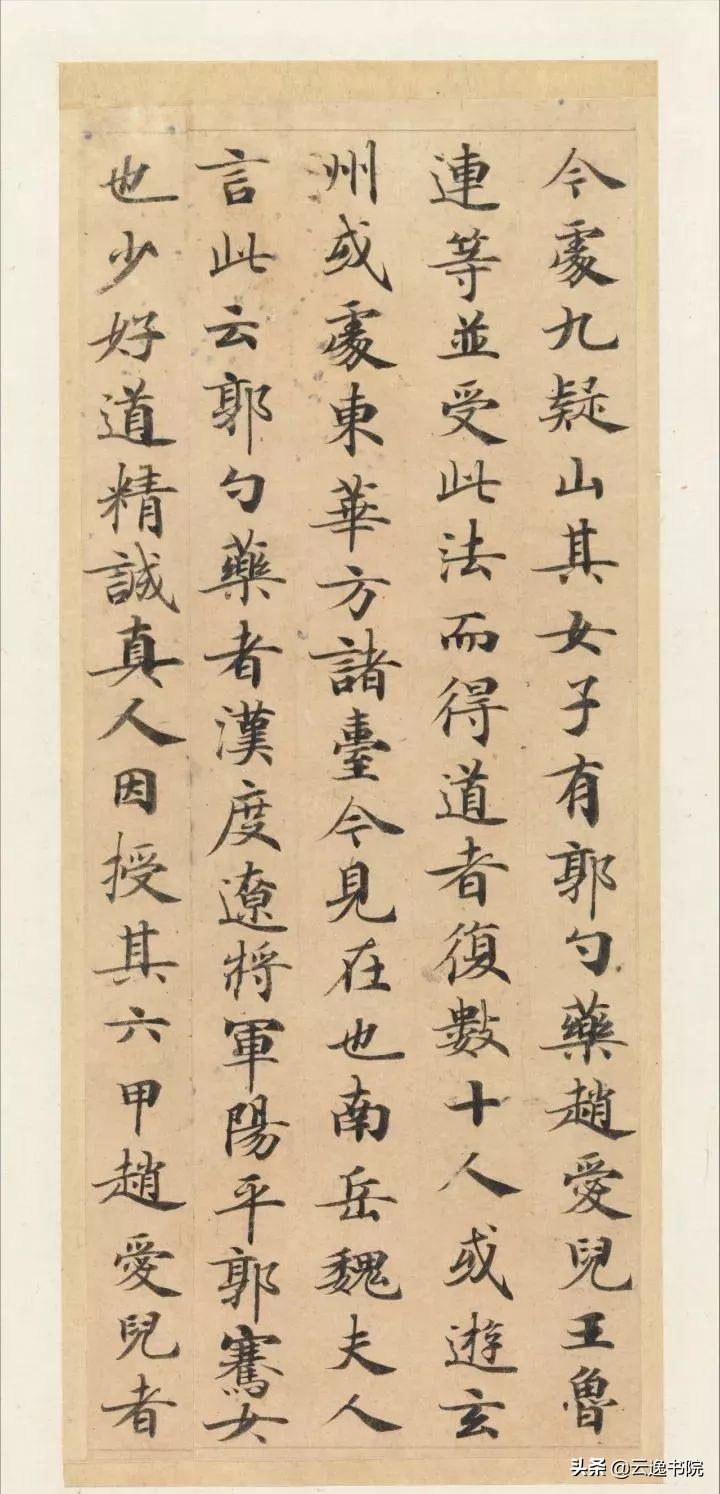 今處九疑山其女子有郭勺藥趙愛兒王魯
連等並受此法而得道者復數十人或遊玄
州或處東華方諸臺今見在也南岳魏夫人
言此云郭勺藥者漢度遼將軍陽平郭騫女
也少好道精誠真人因授其六甲趙愛兒者
头条 @云逸书院